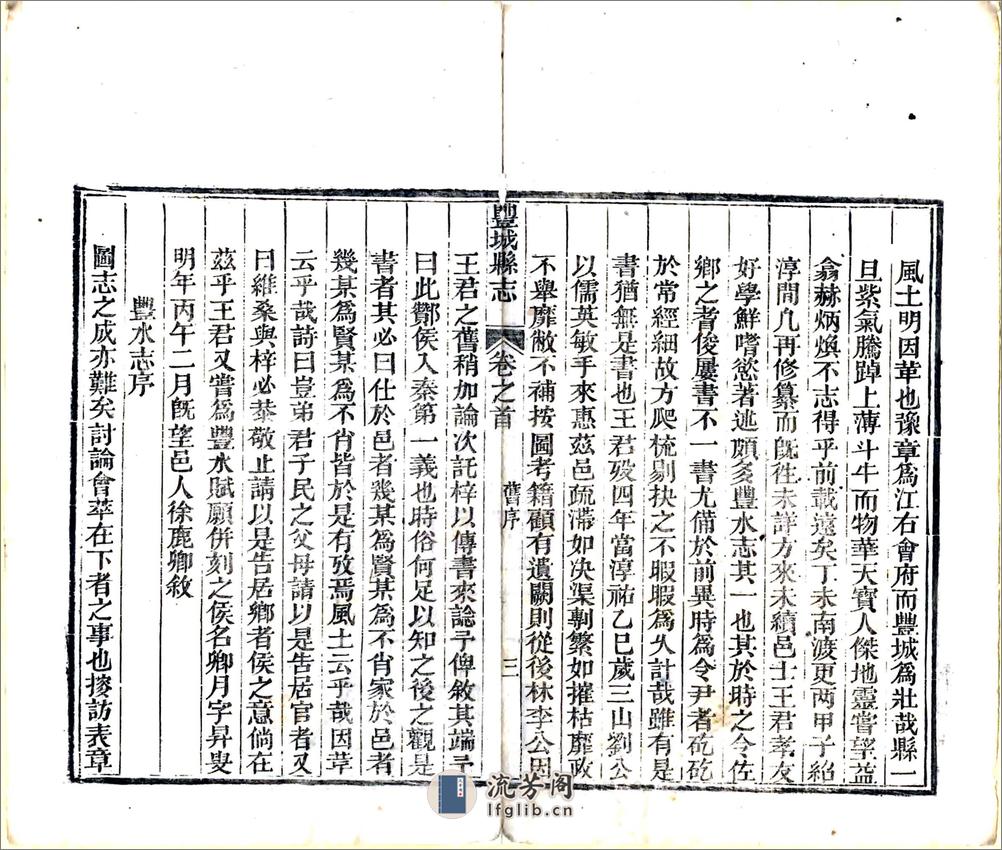 風土明因革也豫章爲江右會府而豐城爲壯哉縣一
旦紫氣騰踔上薄斗牛而物華天寶人傑地靈嘗望益
翕赫炳煥不志得乎前載遠矣丁未南渡更兩甲子紹
淳間凡再修纂而旣徃未詳方來未續邑士王君孝友
好學鮮嗜慾著述頗多豐水志其一也其於時之令佐
鄉之耆俊屢書不一書尤備於前異時爲令尹者矻矻
於常經細故方爬梳剔抉之不暇暇爲久計哉雖有是
書猶無是書也王君歿四年當淳祐乙巳歲三山劉公
以儒英敏手來惠茲邑疏滯如决渠剸繁如摧枯靡政
不舉靡敝不補按圖考籍顧有遺闕則從後林李公因
豐城縣志
卷之首
舊序
三
王君之舊稍加論次託梓以傳書來諗予俾敘其端予
曰此酇侯入秦第一義也時俗何足以知之後之觀是
書者其必曰仕於邑者幾某爲賢某爲不肖家於邑者
幾某爲賢某爲不肖皆於是有攷焉風土云乎哉因革
云乎哉詩曰豈弟君子民之父母請以是告居官者又
曰維桑與梓必恭敬止請以是告居鄉者侯之意倘在
茲乎王君又嘗爲豐水賦願併刻之侯名卿月字昇叟
明年丙午二月旣望邑人徐鹿卿敘
豐水志序
圖志之成亦難矣討論會萃在下者之事也搜訪表章
流芳阁
lfglib.cn